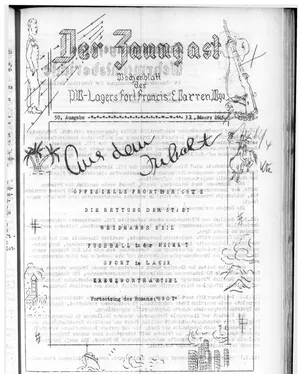 Der Zaungast
Wochenblatt
des
PW-Lagers Fort Francis E. Warren Wyo.
50. Ausgabe 31. Maerz
Aus dem
Inhalt
OFFIZIELLE FRONTBERICHTE
DIE RETTUNG DER STADT
WEIDMANNS HEIL
FUSSBALL in der HEIMAT
SPORT im LAGER
KREUZWORTRAETSEL
Fortsetzung des Romans